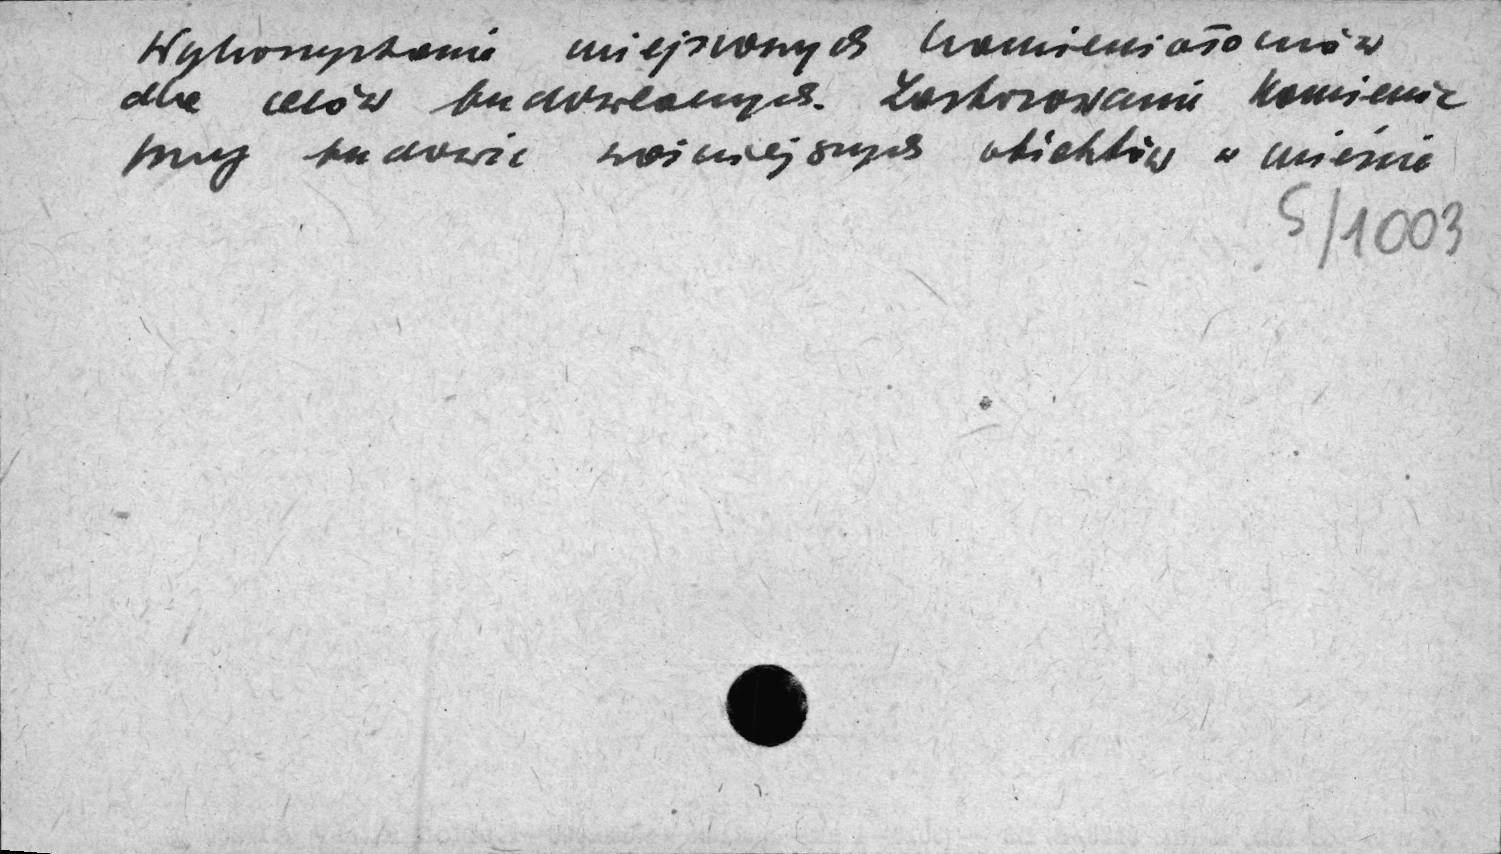 Wykorzystanie miejscowych kamieniołomów
dla celów budowlanych. Zastosowanie kamienia
przy budowie ważniejszych obiektów w mieście
S/1003